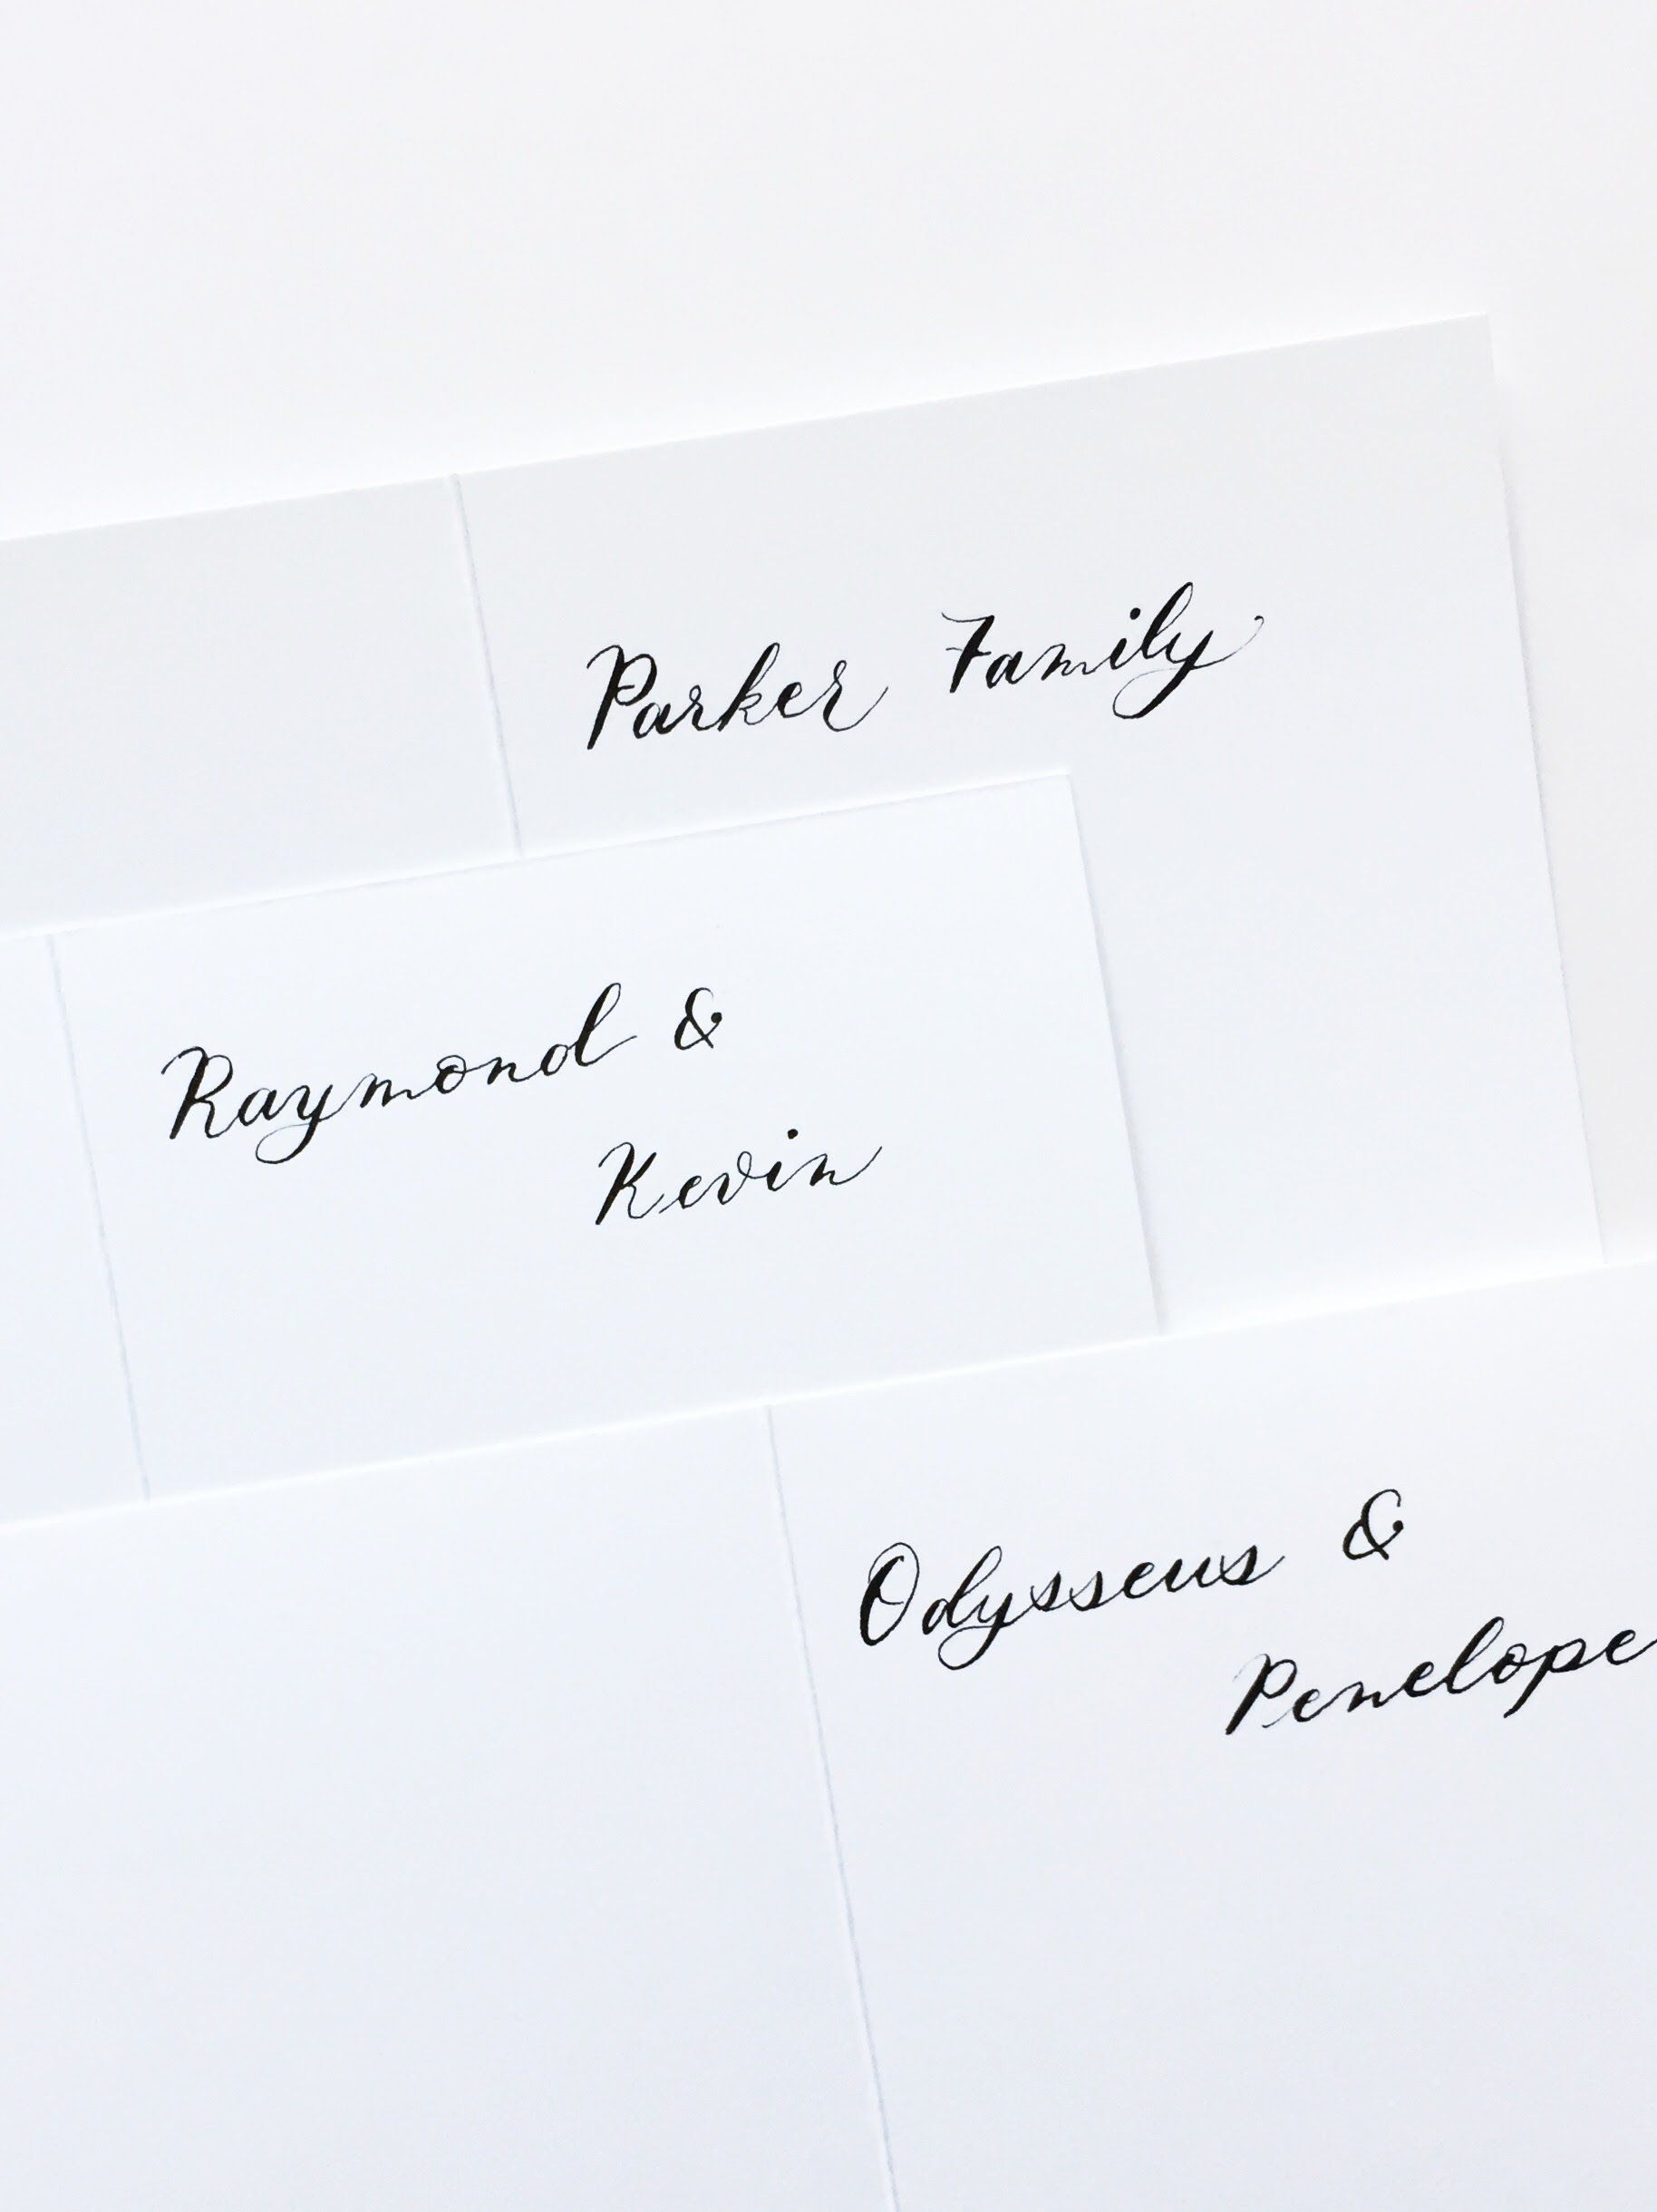 Parker Family
Raymond &
Kevin
Odysseus &
Penelope